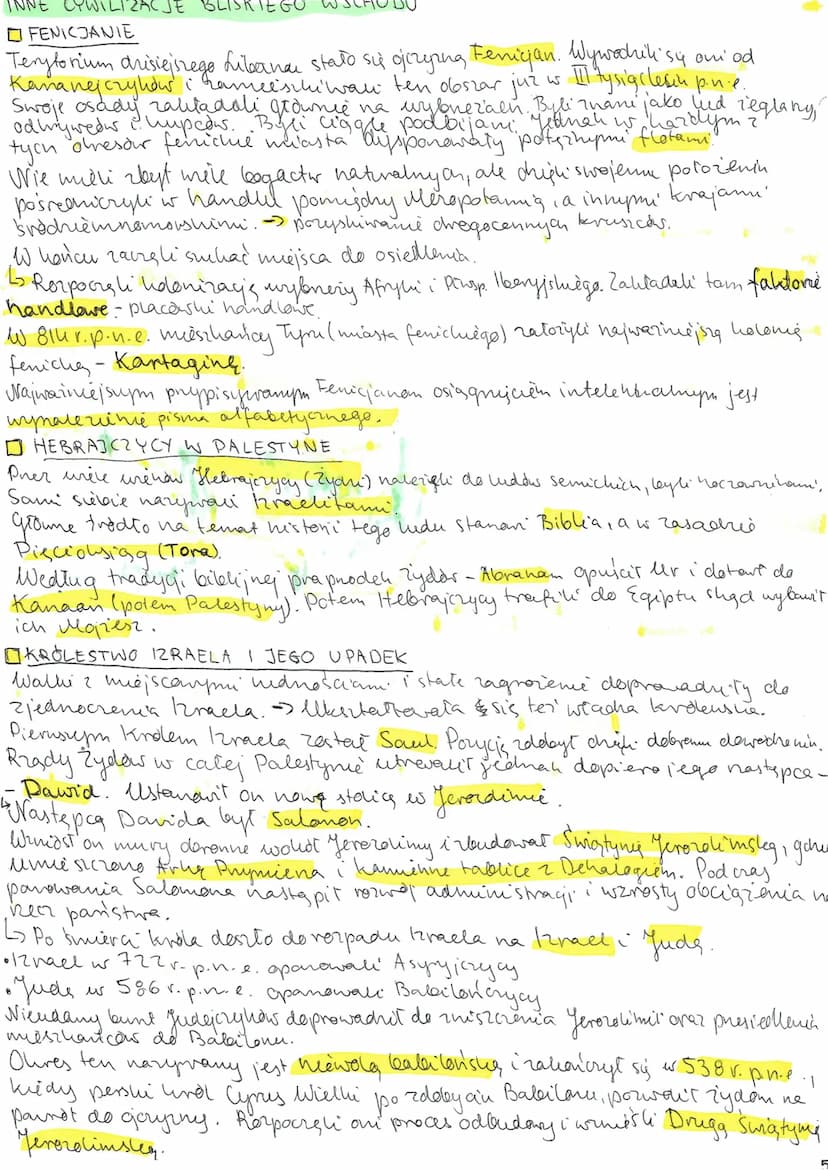 INNE CYWILIZACJE BLISKIEGO WSCHODU
FENICJANIE
Terytorium dzisiejszego Libanu stało się ojczyzną Fenicjan. Wywodzili się oni od
Kananejczyków i zamieszkiwali ten obszar już w III tysiącleciu p.n.e.
Swoje osady zakładali głównie na wybrzeżach. Byli znani jako lud żeglarzy,
odkrywców i kupców. Byli ciągle podbijani, jednak w każdym z
tych okresów fenickie miasta dysponowały potężnymi flotami.
Nie mieli zbyt wiele bogactw naturalnych, ale dzięki swojemu położeniu
pośredniczyli w handlu pomiędzy Mezopotamią, a innymi krajami
śródziemnomorskimi. → pozyskiwanie drogocennych kruszców.
W końcu zaczęli szukać miejsca do osiedlenia.
↳ Rozpoczęli kolonizację wybrzeży Afryki i Płwsp. Iberyjskiego. Zakładali tam faktorie
handlowe - placówki handlowe.
W 814 r. p.n.e. mieszkańcy Tyru (miasta fenickiego) założyli najważniejszą kolonię
fenicką - Kartaginę.
Najważniejszym przypisywanym Fenicjanom osiągnięciem intelektualnym jest
wynalezienie pisma alfabetycznego.
HEBRAJCZYCY W PALESTYNE
Przez wiele wieków Hebrajczycy (Żydzi) należeli do ludów semickich, byli koczownikami.
Sami siebie nazywali Izraelitami.
Główne źródło na temat historii tego ludu stanowi Biblia, a w zasadzie
Pięcioksiąg (Tora).
Według tradycji biblijnej praprzodek Żydów - Abraham opuścił Ur i dotarł do
Kanaan (potem Palestyny). Potem Hebrajczycy trafili do Egiptu skąd wybawił
ich Mojżesz.
KRÓLESTWO IZRAELA I JEGO UPADEK
Walki z miejscowymi ludnościami i stałe zagrożenie doprowadziły do
zjednoczenia Izraela. → Ukształtowała się też władza królewska.
Pierwszym królem Izraela został Saul. Pozycję zdobył dzięki dobremu dowodzeniu.
Rządy Żydów w całej Palestynie utrwalił jednak dopiero jego następca -
- Dawid. Ustanowił on nową stolicę w Jerozolimie.
↳ Następcą Dawida był Salomon.
Wzniósł on mury obronne wokół Jerozolimy i zbudował Świątynię Jerozolimską, gdzie
umieszczono Arkę Przymierza i kamienne tablice z Dekalogiem. Podczas
panowania Salomona nastąpił rozwój administracji i wzrosły obciążenia na
rzecz państwa.
↳ Po śmierci króla doszło do rozpadu Izraela na Izrael i Judę.
• Izrael w 722 r. p.n.e. opanowali Asyryjczycy
• Judę w 586 r. p.n.e. opanowali Babilończycy
Nieudany bunt Judejczyków doprowadził do zniszczenia Jerozolimi oraz przesiedlenia
mieszkańców do Babilonu.
Okres ten nazywany jest niewolą babilońską i zakończył się w 538 r. p.n.e.,
kiedy perski król Cyrus Wielki po zdobyciu Babilonu, pozwolił Żydom na
powrót do ojczyzny. Rozpoczęli oni proces odbudowy i wznieśli Drugą Świątynię
Jerozolimską.
5